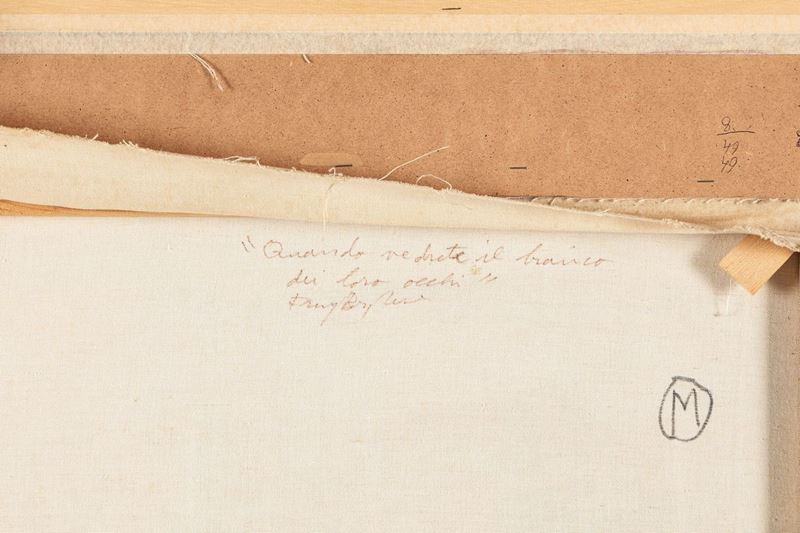 8.
49
49
"Quando vedrete il branco
dei loro occhi"
M